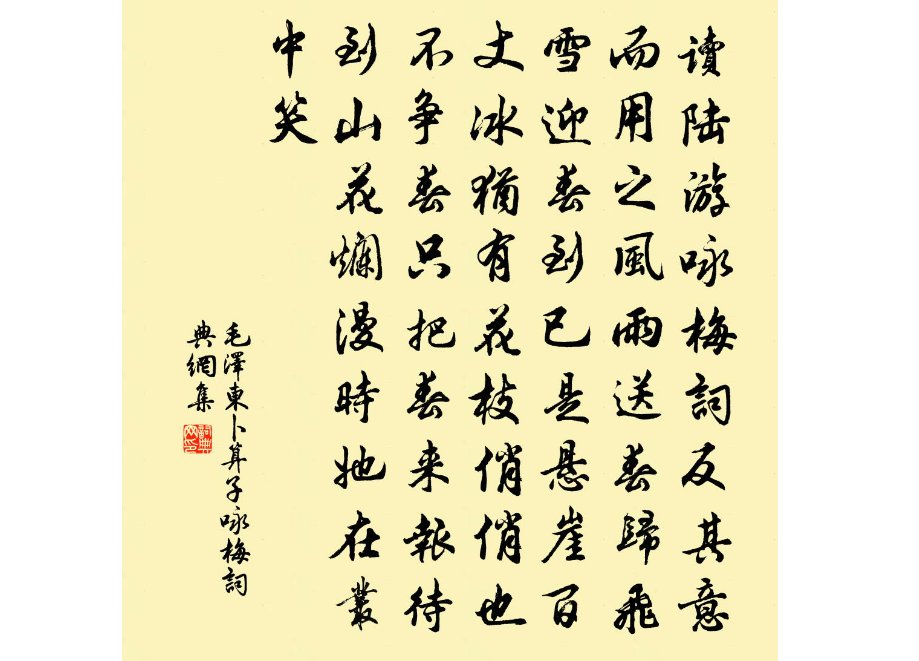 讀陆游咏梅詞反其意
而用之風雨送春歸飛
雪迎春到已是悬崖百
丈冰猶有花枝俏俏也
不争春只把春来報待
到山花爛漫時她在叢
中笑
毛澤東卜算子咏梅詞
典網集